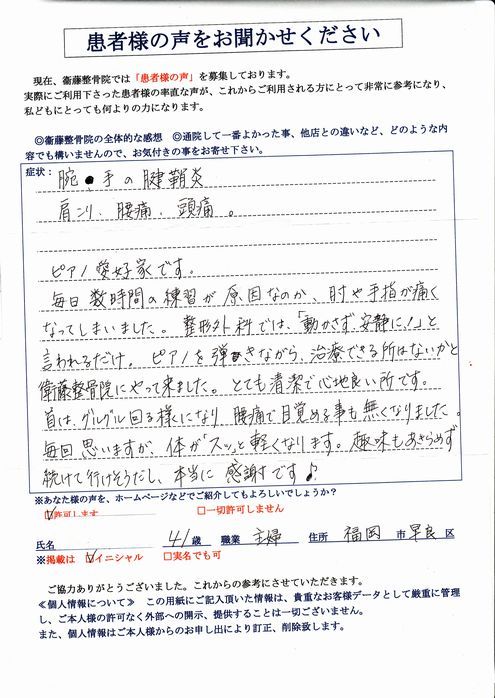 患者様の声をお聞かせください
現在、衞藤整骨院では「患者様の声」を募集しております。
実際にご利用下さった患者様の率直な声が、これからご利用される方にとって非常に参考になり、
私どもにとっても何よりの力になります。
◎衞藤整骨院の全体的な感想　◎通院して一番よかった事、他店との違いなど、どのような内
容でも構いませんので、お気付きの事をお寄せ下さい。
症状：腕・手の腱鞘炎
肩こり、腰痛、頭痛。
ピアノ愛好家です。
毎日数時間の練習が原因なのか、肘や手指が痛く
なってしまいました。整形外科では、「動かさず、安静に！」と
言われるだけ。ピアノを弾きながら、治療できる所はないかと
衛藤整骨院にやって来ました。とても清潔で心地良い所です。
首は、グルグル回る様になり、腰痛で目覚める事も無くなりました。
毎回思いますが、体が「スッ」と軽くなります。趣味もあきらめず
続けて行けそうだし、本当に感謝です♪
※あなた様の声を、ホームページなどでご紹介してもよろしいでしょうか？
☑許可します　□一切許可しません
氏名　41歳　職業　主婦　住所　福岡市早良区
※掲載は　☑イニシャル　□実名でも可
ご協力ありがとうございました。これからの参考にさせていただきます。
≪個人情報について≫　この用紙にご記入頂いた情報は、貴重なお客様データとして厳重に管理
し、ご本人様の許可なく外部への開示、提供することは一切ございません。
また、個人情報はご本人様からのお申し出により訂正、削除致します。